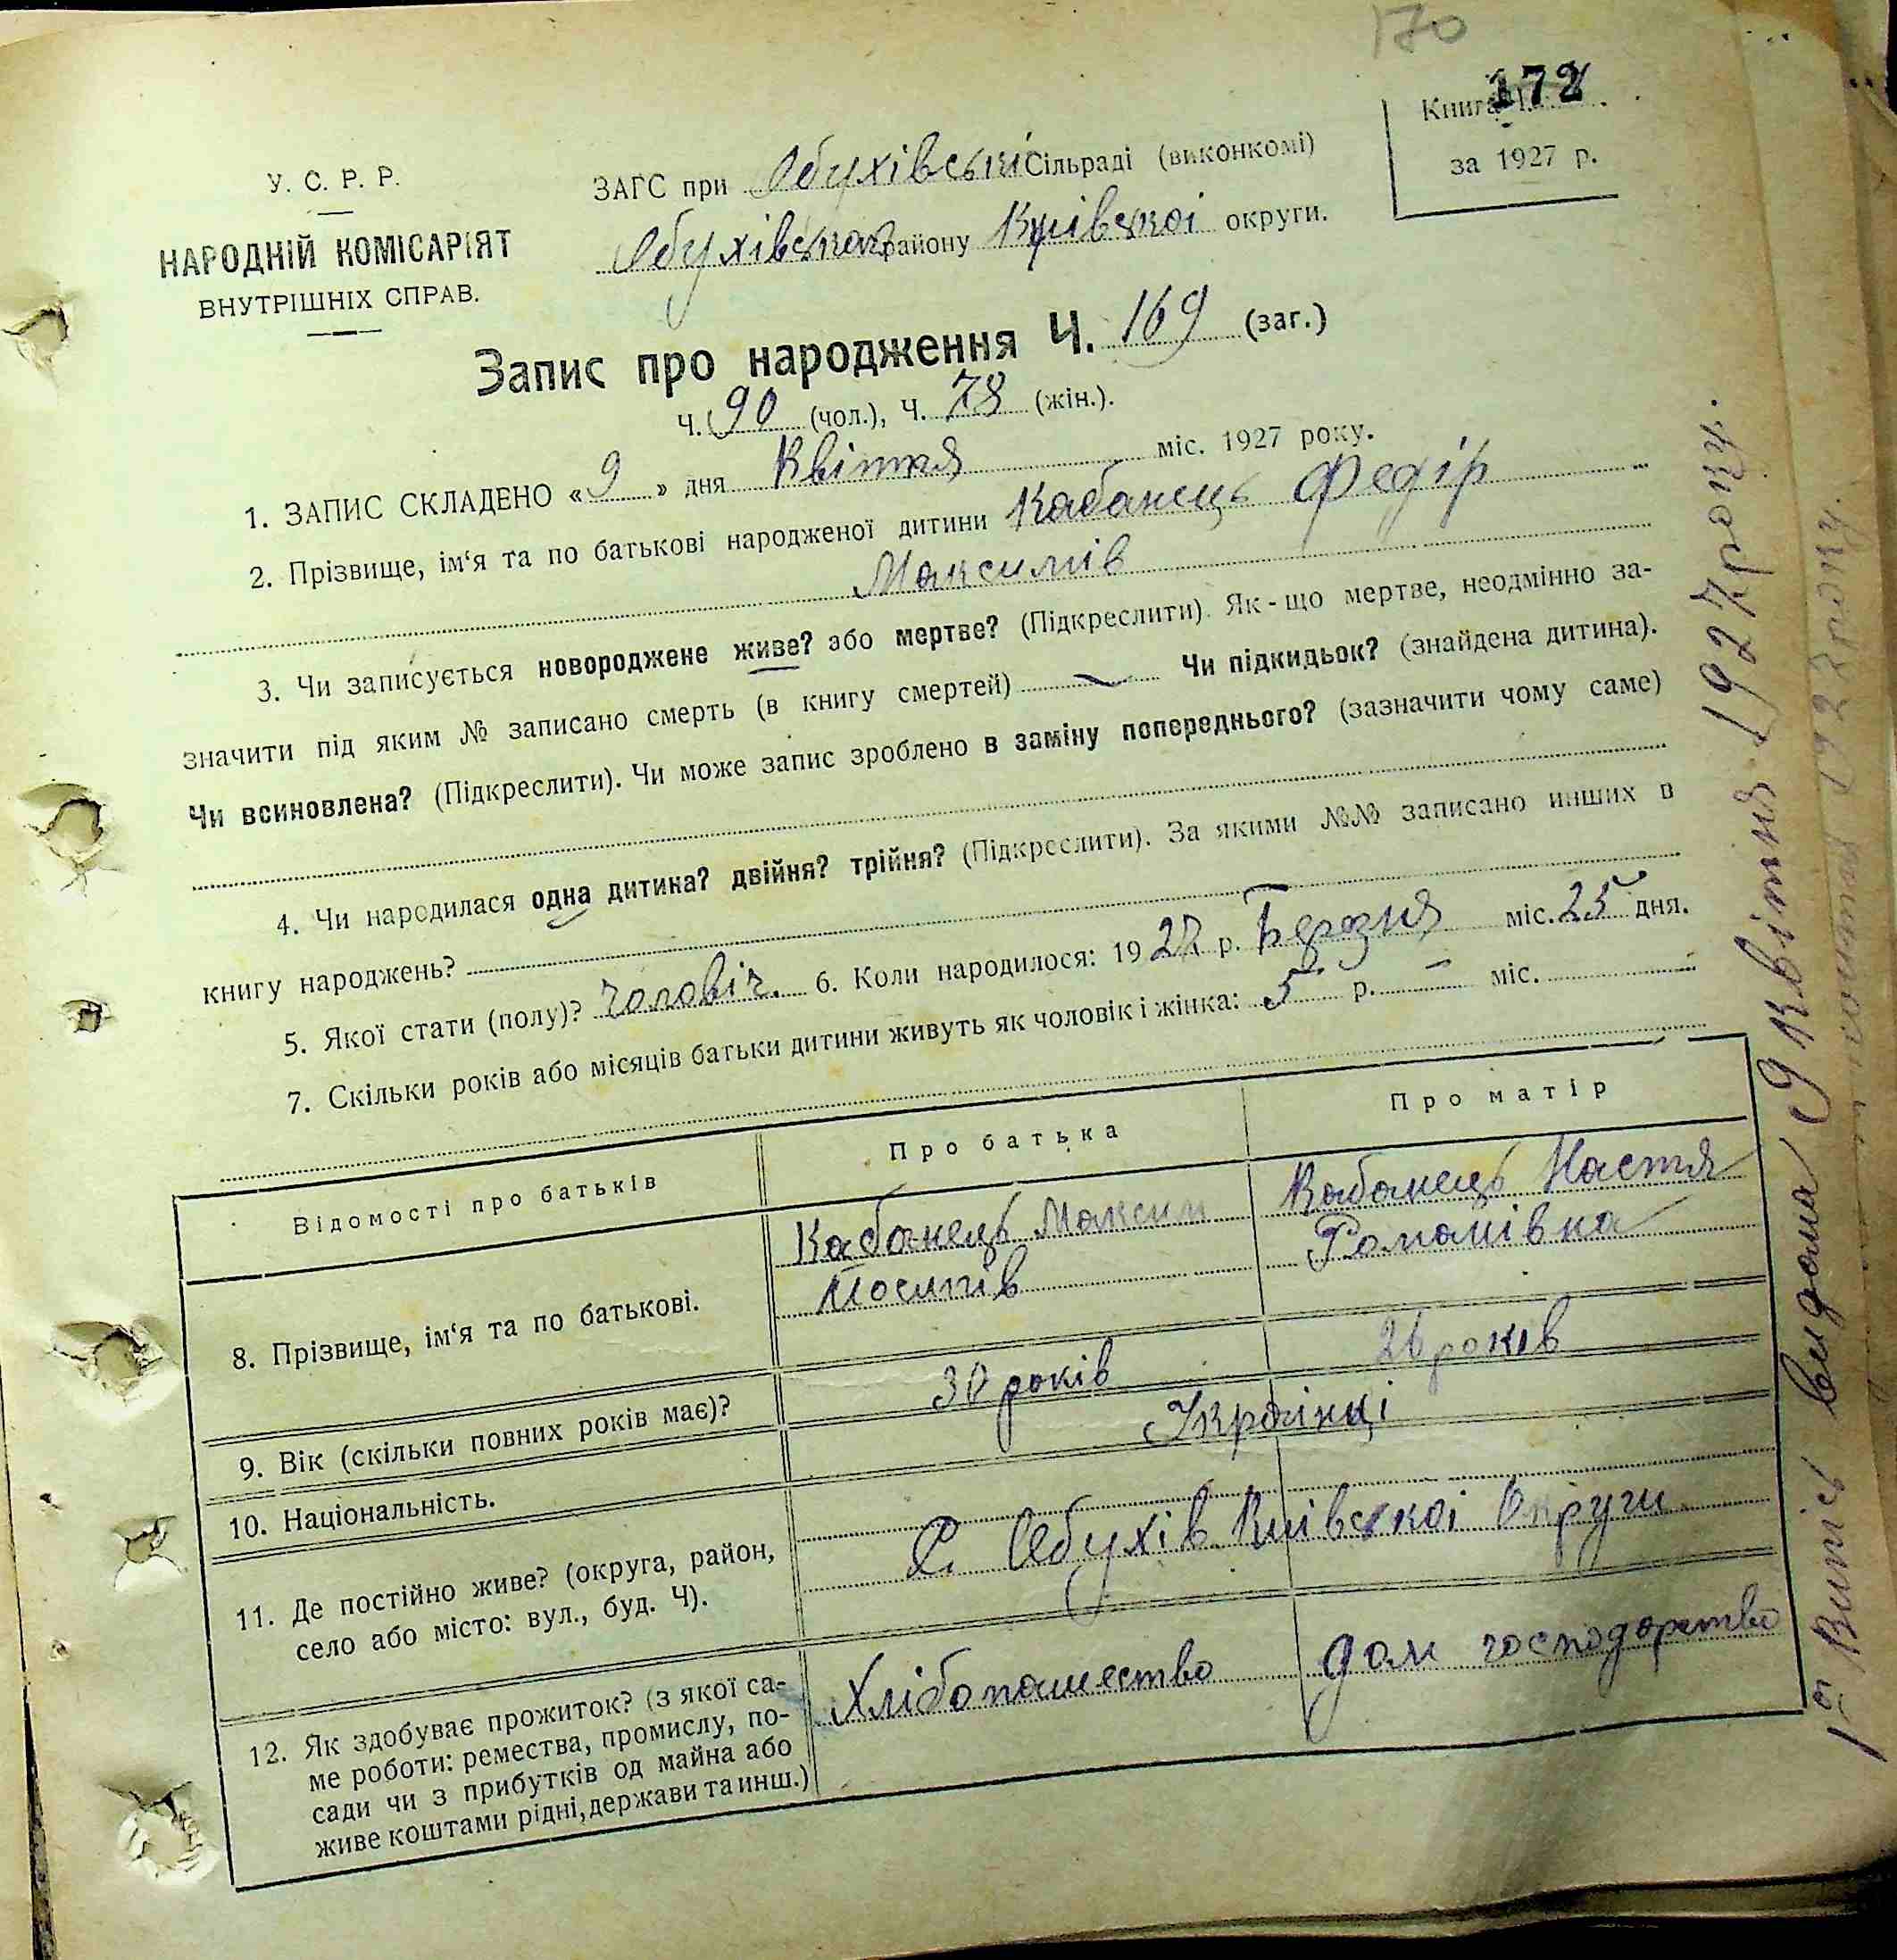 170
172
Книга
за 1927 р.
У. С. Р. Р.
НАРОДНІЙ КОМІСАРІЯТ
ВНУТРІШНІХ СПРАВ.
ЗАГС при Обухівські Сільраді (виконкомі)
Обухівського району Київської округи.
Запис про народження Ч. 169 (заг.)
Ч. 90 (чол.), Ч. 78 (жін.).
1. ЗАПИС СКЛАДЕНО « 9 » дня Квітня міс. 1927 року.
2. Прізвище, ім‘я та по батькові народженої дитини Кабанець Федір
Максимів
3. Чи записується новороджене живе? або мертве? (Підкреслити). Як-що мертве, неодмінно за-
значити під яким № записано смерть (в книгу смертей) Чи підкидьок? (знайдена дитина).
Чи всиновлена? (Підкреслити). Чи може запис зроблено в заміну попереднього? (зазначити чому саме)
4. Чи народилася одна дитина? двійня? трійня? (Підкреслити). За якими №№ записано инших в
книгу народжень?
5. Якої стати (полу)? чоловіч. 6. Коли народилося: 1927 р. Березня міс. 25 дня.
7. Скільки років або місяців батьки дитини живуть як чоловік і жінка: 5 р. – міс.
Відомості про батьків Про батька Про матір
8. Прізвище, ім‘я та по батькові. Кабанець Максим Кабанець Настя
Йосипів Романівна
9. Вік (скільки повних років має)? 30 років 26 років
10. Національність. Українці
11. Де постійно живе? (округа, район,
село або місто: вул., буд. Ч). С. Обухів Київської Округи
12. Як здобуває прожиток? (з якої са-
ме роботи: ремества, промислу, по-
сади чи з прибутків од майна або
живе коштами рідні, держави та инш.)
Хлібопашество Дом господарство
Випісь видана 9 Квітня 1927 року.